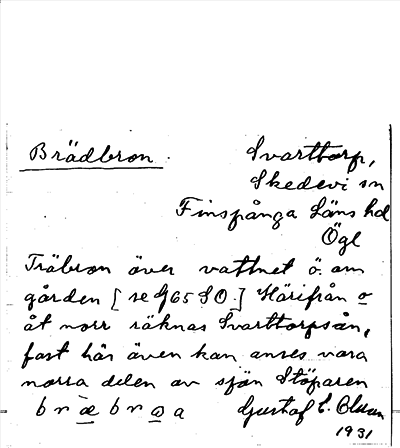 Brädbron.
Svarttorp,
Skedevi sn
Finspånga Läns hd
Ögl
Träbron över vattnet ö. om
gården [se G65 SO.] Härifrån o
åt norr räknas Svarttorpsån,
fast här även kan anses vara
norra delen av sjön Stöparen
bræbrωa Gustaf E. Olsson
1931